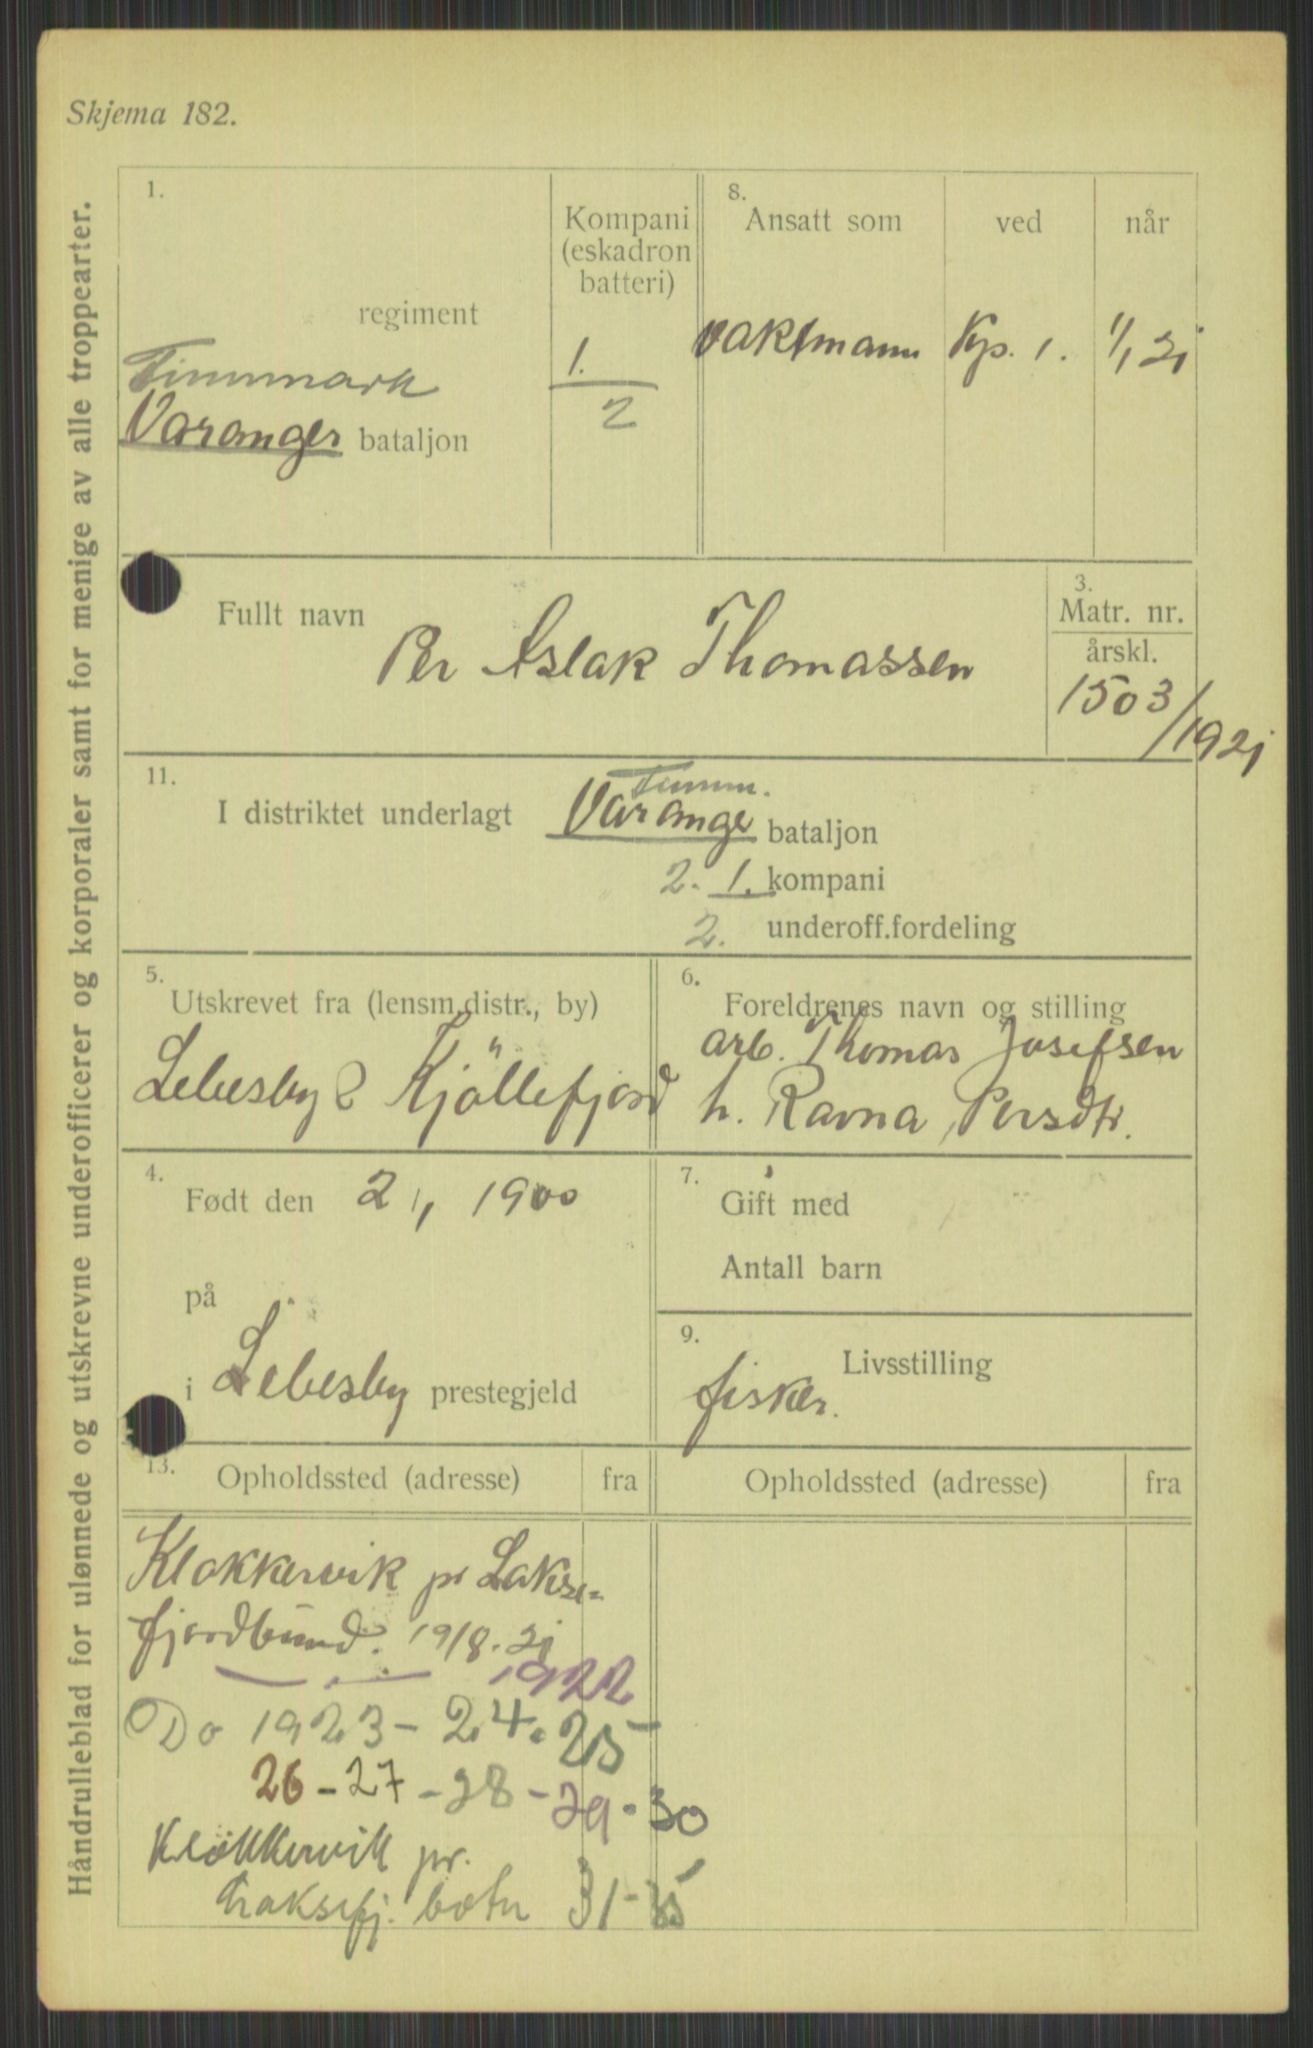 Skjema 182.
Håndrulleblad for ulønnede og utskrevne underofficerer og korporaler samt for menige av alle troppearter.
1.
Kompani
(eskadron
batteri)
regiment
Finnmark
Varanger bataljon
1.
2
8.
Ansatt som
ved
når
Vaktmann Kp. 1. 1/1 21
Fullt navn
Per Aslak Thomassen
3.
Matr. nr.
årskl.
1503/1921
11.
Finnm.
I distriktet underlagt Varanger bataljon
2. 1. kompani
2. underoff.fordeling
5.
Utskrevet fra (lensm.distr., by)
Lebesby & Kjöllefjord
6.
Foreldrenes navn og stilling
arb. Thomas Josefsen
h. Ravna Persdtr.
4.
Født den 2/1 1900
på
i Lebesby prestegjeld
7.
Gift med
Antall barn
9.
Livsstilling
fisker.
13.
Opholdssted (adresse) fra
Opholdssted (adresse) fra
Klokkervik pr Lakse-
fjordbund. 1918. 21
1922
Do 1923 - 24. 25 -
26 - 27 - 28 - 29 - 30
Klokkervik pr.
Laksefj. botn 31-